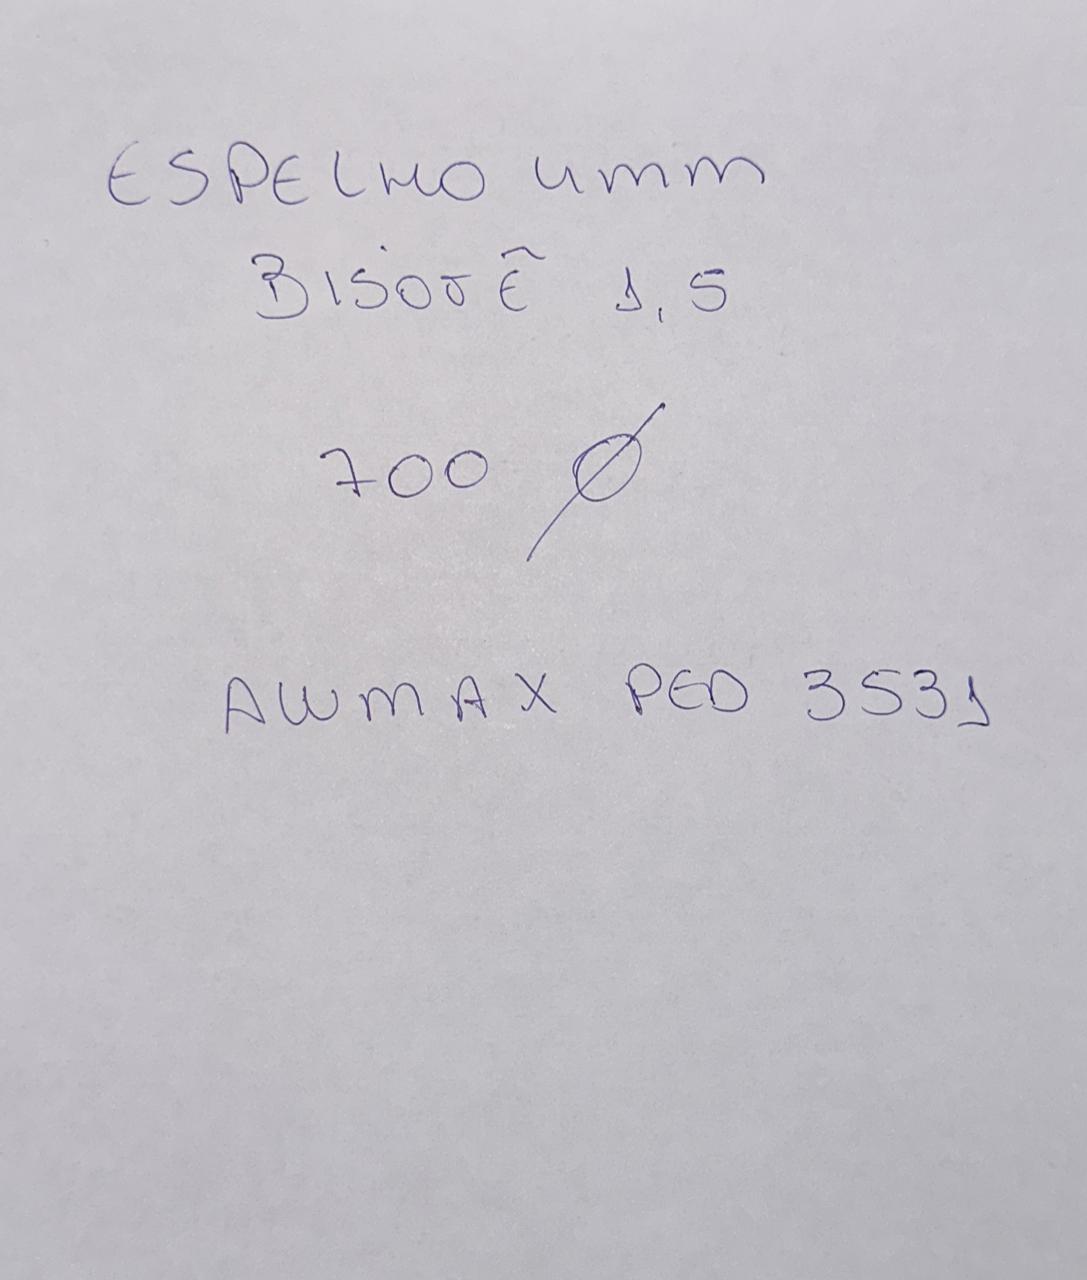 ESPELHO 4mm
BISOTÊ 1,5
700 Ø
AWMAX PED 3531